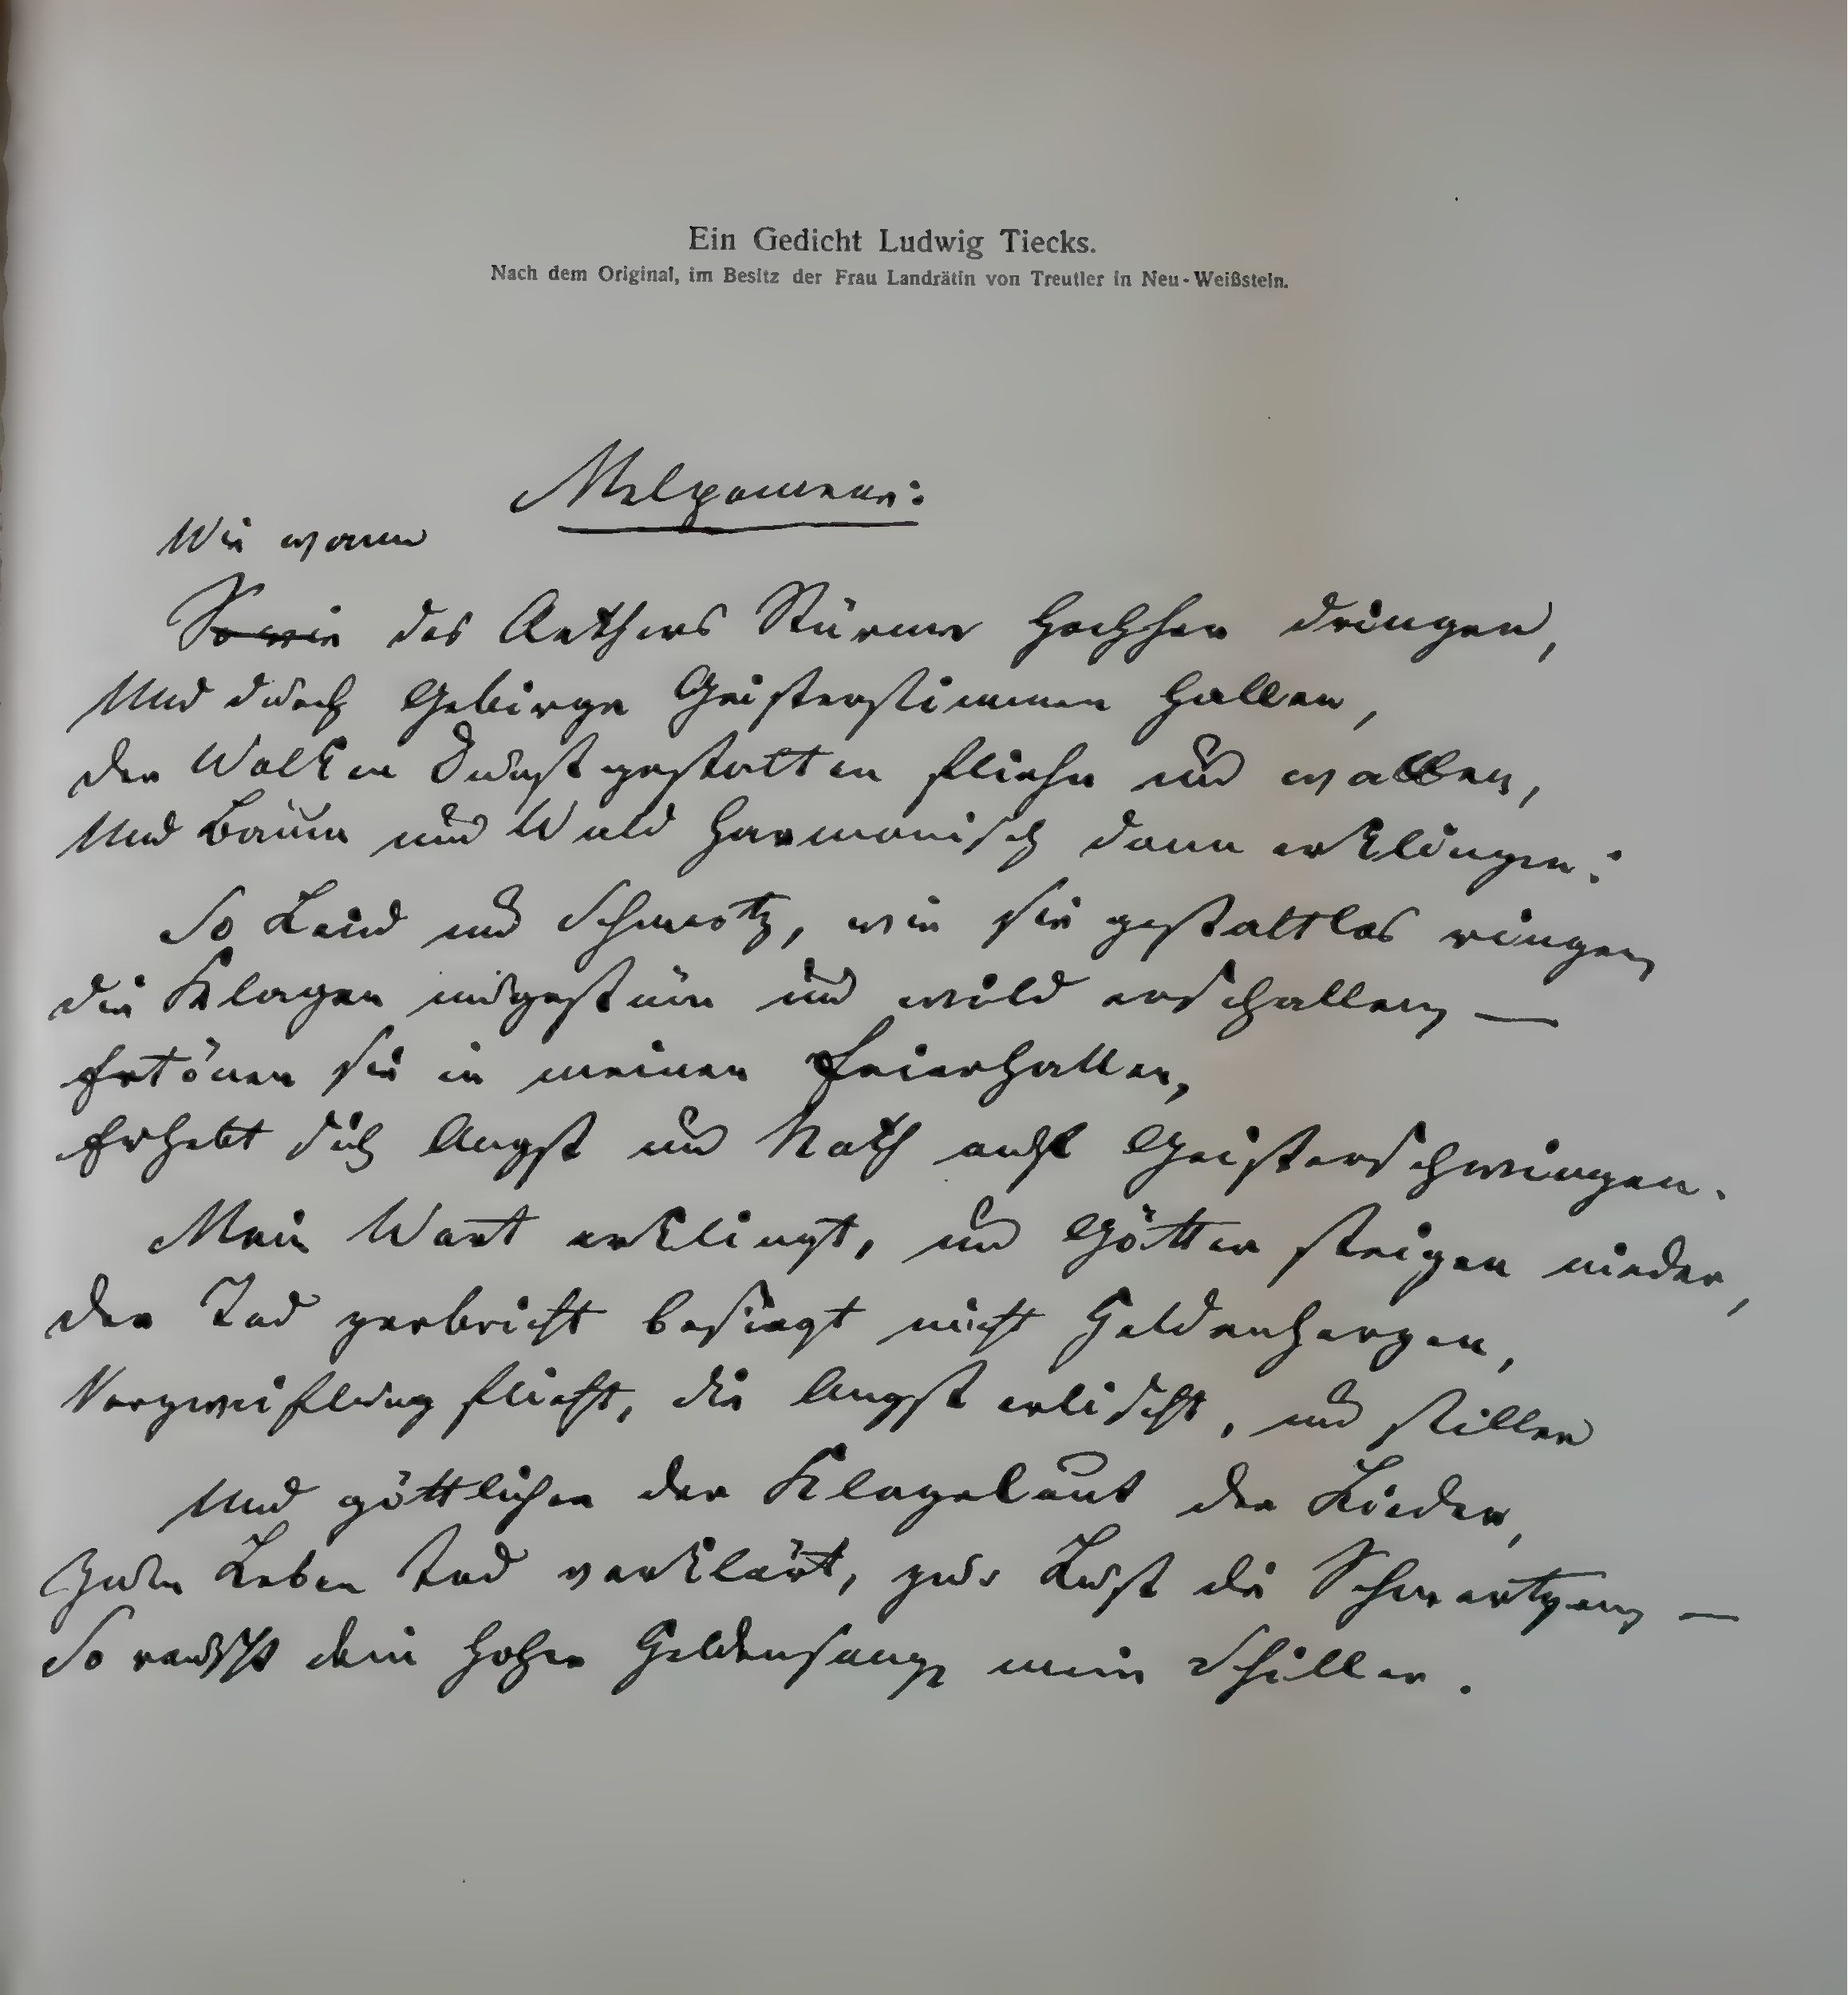 Ein Gedicht Ludwig Tiecks.
Nach dem Original, im Besitz der Frau Landrätin von Treutler in Neu-Weißstein.
Melpomene:
Wie wann
So wie des Aethers Stürme hochher dringen,
Und durch Gebirge Geisterstimmen hallen,
der Wolken Dunstgestalten fliehn und wallen,
Und Bäum und Wald harmonisch dann erklingen:
So Leid und Schmertz, wie sie gestaltlos ringen
die Klagen ungestüm und wild erschallen —
Ertönen sie in meinen Feierhallen,
Erhebt sich Angst und Noth auf Geisterschwingen.
Mein Wort erklingt, und Götter steigen nieder,
der Tod zerbricht besiegt nicht Heldenherzen,
Verzweiflung flieht, die Angst erlischt, und stiller
Und göttlicher der Klagelaut der Lieder,
Zum Leben Tod verklärt, zur Lust die Schmertzen —
So rauscht dein hoher Heldensang, mein Schiller.